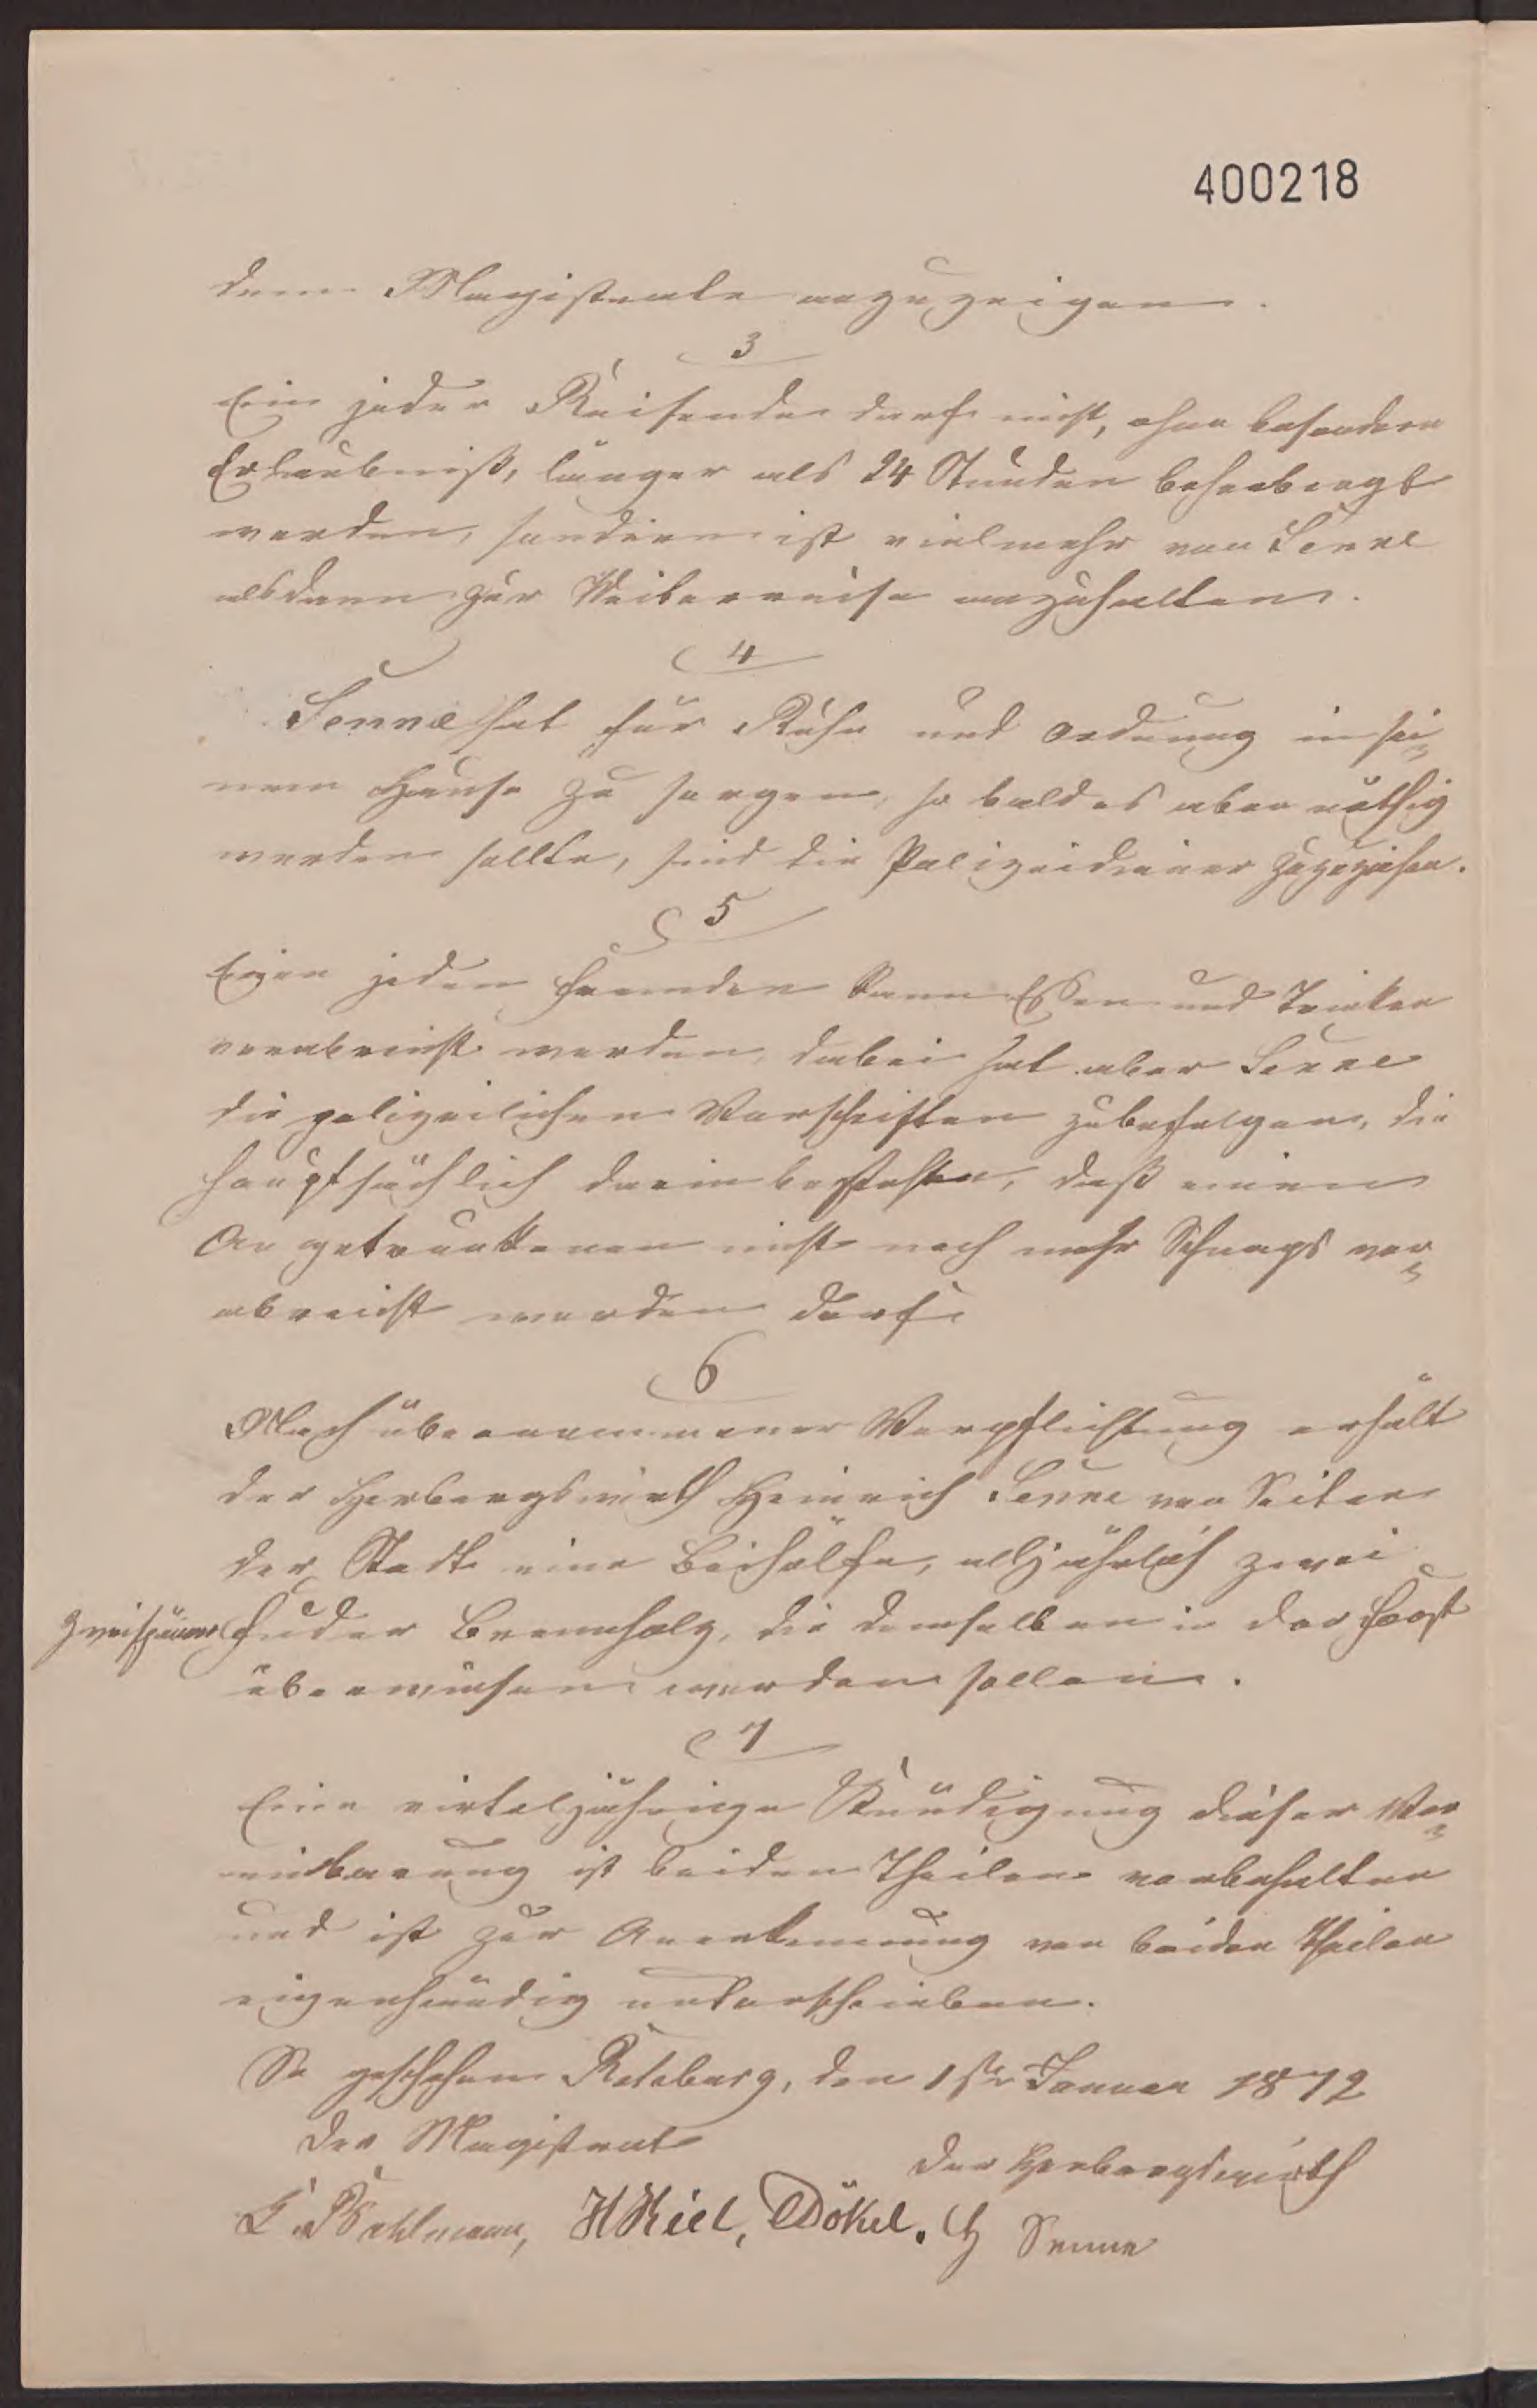 400218
dem Magistrate anzuzeigen.
3
Ein jeder Reisende darf nicht, ohne besondere
Erlaubniß, länger als 24 Stunden beherbergt
werden, sondern ist vielmehr von Senne
alsdann zur Weiterreise anzuhalten.
4
Senne hat für Ruhe und Ordnung in sei-
nem Hause zu sorgen, so bald es aber nöthig
werden sollte, sind die Polizeidiener zuzuziehen.
§ 5
Einen jeden Fremden kann Essen und Trinken
verabreicht werden, dabei hat aber Senne
die polizeilichen Vorschriften zubefolgen, die
hauptsächlich darin bestehen, daß einen
Angetrunkenen nicht noch mehr Schnaps ver-
abreicht werden darf.
6
Nach übernommener Verpflichtung erhält
der Herbergswirth Heinrich Senne von Seiten
der Stadt eine Beihülfe, alljährlich zwei
zweispänn Fuder Brennholz, die demselben in der Forst
überwiesen werden sollen.
7
Eine virteljährige Kündigung dieser Ver-
einbarung ist beiden Theilen vorbehalten
und ist zur Anerkennung von beiden Theilen
eigenhändig unterschrieben.
So geschehen Rehburg, den 1ster Januar 1872
Der Magistrat
Der Herbergswirth
Mahlmann, H Kiel, Dökel. H Senne